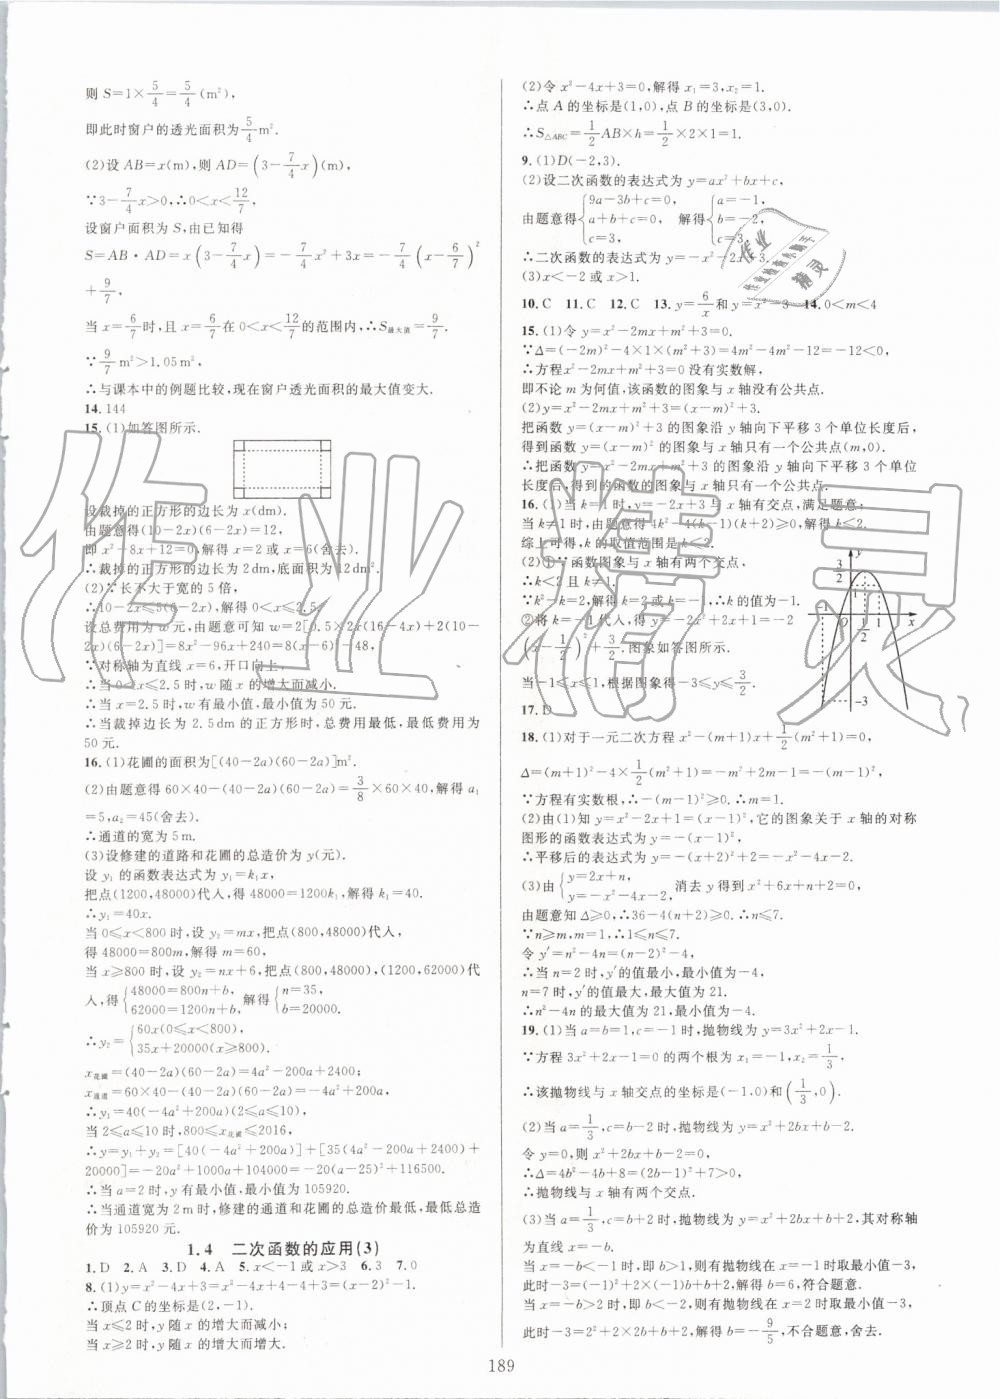 则 S=1×5/4=5/4(m²),
即此时窗户的透光面积为5/4m².
(2)设 AB=x(m),则 AD=(3-7/4x)(m),
∵3-7/4x>0,∴0<x<12/7,
设窗户面积为 S,由已知得
S=AB·AD=x(3-7/4x)=-7/4x²+3x=-7/4(x-6/7)²
+9/7,
当 x=6/7时,且 x=6/7在 0<x<12/7的范围内,∴S最大值=9/7.
∵9/7m²>1.05m².
∴与课本中的例题比较,现在窗户透光面积的最大值变大.
14.144
15.(1)如答图所示.
设裁掉的正方形的边长为 x(dm).
由题意得(10-2x)(6-2x)=12,
即 x²-8x+12=0,解得 x=2或 x=6(舍去).
∴裁掉的正方形的边长为 2dm,底面积为 12dm².
(2)∵长不大于宽的 5 倍,
∴10-2x≤5(6-2x),解得 0<x≤2.5,
设总费用为 w 元,由题意可知 w=2[0.5×2x(16-4x)+2(10-
2x)(6-2x)]=8x²-96x+240=8(x-6)²-48,
∵对称轴为直线 x=6,开口向上,
∴当 0<x≤2.5 时,w 随 x 的增大而减小.
∴当 x=2.5 时,w 有最小值,最小值为 50 元.
∴当裁掉边长为 2.5dm 的正方形时,总费用最低,最低费用为
50 元.
16.(1)花圃的面积为[(40-2a)(60-2a)]m².
(2)由题意得 60×40-(40-2a)(60-2a)=3/8×60×40,解得 a₁
=5,a₂=45(舍去).
∴通道的宽为 5m.
(3)设修建的道路和花圃的总造价为 y(元).
设 y₁ 的函数表达式为 y₁=k₁x,
把点(1200,48000)代入,得 48000=1200k₁,解得 k₁=40.
∴y₁=40x.
当 0≤x<800 时,设 y₂=mx,把点(800,48000)代入,
得 48000=800m,解得 m=60.
当 x≥800 时,设 y₂=nx+6,把点(800,48000),(1200,62000)代
入,得{48000=800n+b, 62000=1200n+b,解得{n=35, b=20000.
∴y₂={60x(0≤x<800), 35x+20000(x≥800).
x花圃=(40-2a)(60-2a)=4a²-200a+2400;
x通道=60×40-(40-2a)(60-2a)=-4a²+200a,
∴y₁=40(-4a²+200a)(2≤a≤10).
当 2≤a≤10 时,800≤x花圃≤2016,
∴y=y₁+y₂=[40(-4a²+200a)]+[35(4a²-200a+2400)+
20000]=-20a²+1000a+104000=-20(a-25)²+116500.
∴当 a=2 时,y 有最小值,最小值为 105920.
∴当通道宽为 2m 时,修建的通道和花圃的总造价最低,最低总造
价为 105920 元.
1.4 二次函数的应用(3)
1.D 2.A 3.D 4.A 5.x<-1 或 x>3 6.3 7.0
8.(1)y=x²-4x+3=x²-4x+4-4+3=(x-2)²-1.
∴顶点 C 的坐标是(2,-1).
当 x≤2 时,y 随 x 的增大而减小.
当 x>2 时,y 随 x 的增大而增大.
(2)令 x²-4x+3=0,解得 x₁=3,x₂=1.
∴点 A 的坐标是(1,0),点 B 的坐标是(3,0).
∴S△ABC=1/2AB×h=1/2×2×1=1.
9.(1)D(-2,3).
(2)设二次函数的表达式为 y=ax²+bx+c,
由题意得{9a-3b+c=0, a+b+c=0, c=3, 解得{a=-1, b=-2, c=3.
∴二次函数的表达式为 y=-x²-2x+3.
(3)x<-2 或 x>1.
10.C 11.C 12.C 13.y=6/x和 y=x²-3 14.0<m<4
15.(1)令 y=x²-2mx+m²+3=0.
∵Δ=(-2m)²-4×1×(m²+3)=4m²-4m²-12=-12<0,
∴方程 x²-2mx+m²+3=0 没有实数解,
即不论 m 为何值,该函数的图象与 x 轴没有公共点.
(2)y=x²-2mx+m²+3=(x-m)²+3.
把函数 y=(x-m)²+3 的图象沿 y 轴向下平移 3 个单位长度后,
得到函数 y=(x-m)² 的图象与 x 轴只有一个公共点(m,0).
∴把函数 y=x²-2mx+m²+3 的图象沿 y 轴向下平移 3 个单位
长度后,得到的函数的图象与 x 轴只有一个公共点.
16.(1)当 k=1 时,y=-2x+3 与 x 轴有交点,满足题意;
当 k≠1 时,由题意得 4k²-4(k-1)(k+2)≥0,解得 k≤2.
综上可得,k 的取值范围是 k≤2.
(2)①∵函数图象与 x 轴有两个交点,
∴k<2 且 k≠1.
∵k²-k=2,解得 k=2 或 k=-1,∴k 的值为-1.
②将 k=-1 代入,得 y=-2x²+2x+1=-2
(x-1/2)²+3/2.图象如答图所示.
当-1≤x≤1 时,根据图象得-3≤y≤3/2.
y 3/2 -1 O 1/2 1 x -3
17.D
18.(1)对于一元二次方程 x²-(m+1)x+1/2(m²+1)=0,
Δ=(m+1)²-4×1/2(m²+1)=-m²+2m-1=-(m-1)²,
∵方程有实数根,∴-(m-1)²≥0.∴m=1.
(2)由(1)知 y=x²-2x+1=(x-1)²,它的图象关于 x 轴的对称
图形的函数表达式为 y=-(x-1)²,
∴平移后的表达式为 y=-(x+2)²+2=-x²-4x-2.
(3)由{y=2x+n, y=-x²-4x-2,消去 y 得到 x²+6x+n+2=0,
由题意知 Δ≥0,∴36-4(n+2)≥0.∴n≤7.
∵n≥m,m=1,∴1≤n≤7.
令 y′=n²-4n=(n-2)²-4,
∴当 n=2 时,y′的值最小,最小值为-4,
n=7 时,y′的值最大,最大值为 21.
∴n²-4n 的最大值为 21,最小值为-4.
19.(1)当 a=b=1,c=-1 时,抛物线为 y=3x²+2x-1.
∵方程 3x²+2x-1=0 的两个根为 x₁=-1,x₂=1/3,
∴该抛物线与 x 轴交点的坐标是(-1,0)和(1/3,0).
(2)当 a=1/3,c=b-2 时,抛物线为 y=x²+2bx+b-2.
令 y=0,则 x²+2bx+b-2=0.
∴Δ=4b²-4b+8=(2b-1)²+7>0,
∴抛物线与 x 轴有两个交点.
(3)当 a=1/3,c=b+2 时,抛物线为 y=x²+2bx+b+2,其对称轴
为直线 x=-b.
当 x=-b<-1 时,即 b>1,则有抛物线在 x=-1 时取最小值-3,
此时-3=(-1)²+2×(-1)b+b+2,解得 b=6,符合题意.
当 x=-b>2 时,即 b<-2,则有抛物线在 x=2 时取最小值-3,
此时-3=2²+2×2b+b+2,解得 b=-9/5,不合题意,舍去.
189
作业精灵
作业
精灵